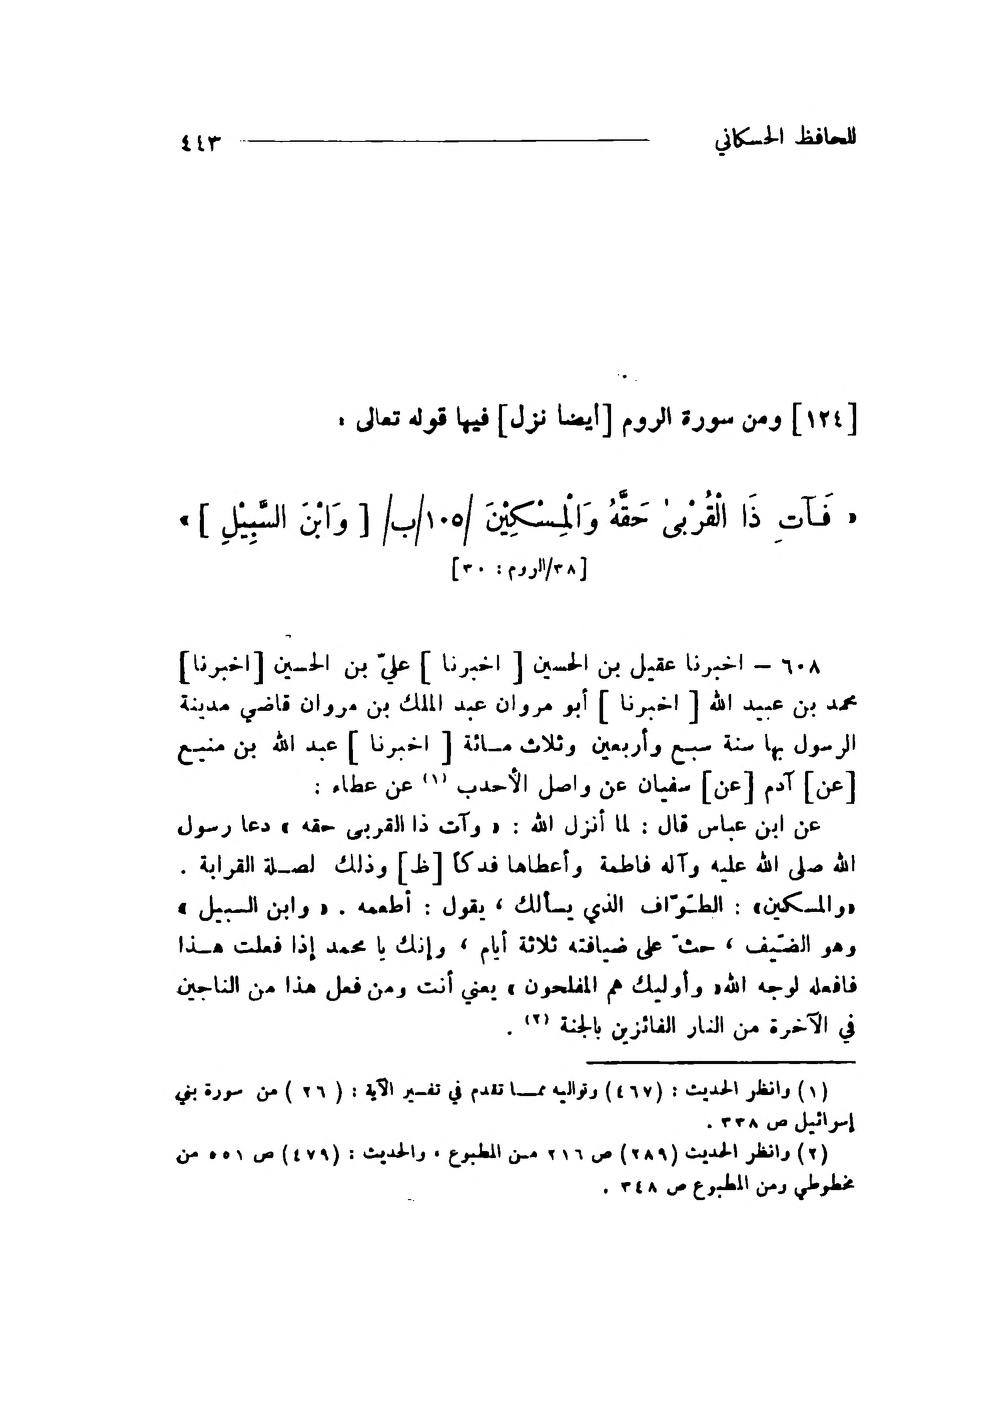 للحافظ الحسكاني ٤٤٣
[١٢٤] ومن سورة الروم [أيضا نزل] فيها قوله تعالى :
« فَـآتِ ذَا الْقُرْبىٰ حَقَّهُ وَالْمِسْكِيْنَ /١٠٥/ب/ [ وَابْنَ السَّبِيْلِ ] »
[٣٨/الروم : ٣٠]
٦٠٨ – اخبرنا عقيل بن الحسين [ اخبرنا ] عليّ بن الحسين [اخبرنا]
محمد بن عبيد الله [ اخبرنا ] أبو مروان عبد الملك بن مروان قاضي مدينة
الرسول بها سنة سبع وأربعين وثلاث مائة [ اخبرنا ] عبد الله بن منيع
[عن] آدم [عن] سفيان عن واصل الأحدب (١) عن عطاء :
عن ابن عباس قال : لما أنزل الله : « وآت ذا القربى حقه » دعا رسول
الله صلى الله عليه وآله فاطمة وأعطاها فدكاً [ظ] وذلك لصلة القرابة .
«والمسكين» : الطوّاف الذي يسألك ، يقول : أطعمه . « وابن السبيل »
وهو الضّيف ، حثّ على ضيافته ثلاثة أيام ، وإنك يا محمد إذا فعلت هذا
فافعله لوجه الله« وأوليك هم المفلحون » يعني أنت ومن فعل هذا من الناجين
في الآخرة من النار الفائزين بالجنة (٢) .
(١) وانظر الحديث : (٤٦٧) وتواليه مما تقدم في تفسير الآية : ( ٢٦ ) من سورة بني
إسرائيل ص ٣٣٨ .
(٢) وانظر الحديث (٢٨٩) ص ٢١٦ من المطبوع ، والحديث : (٤٧٩) ص ٥٥١ من
مخطوطي ومن المطبوع ص ٣٤٨ .